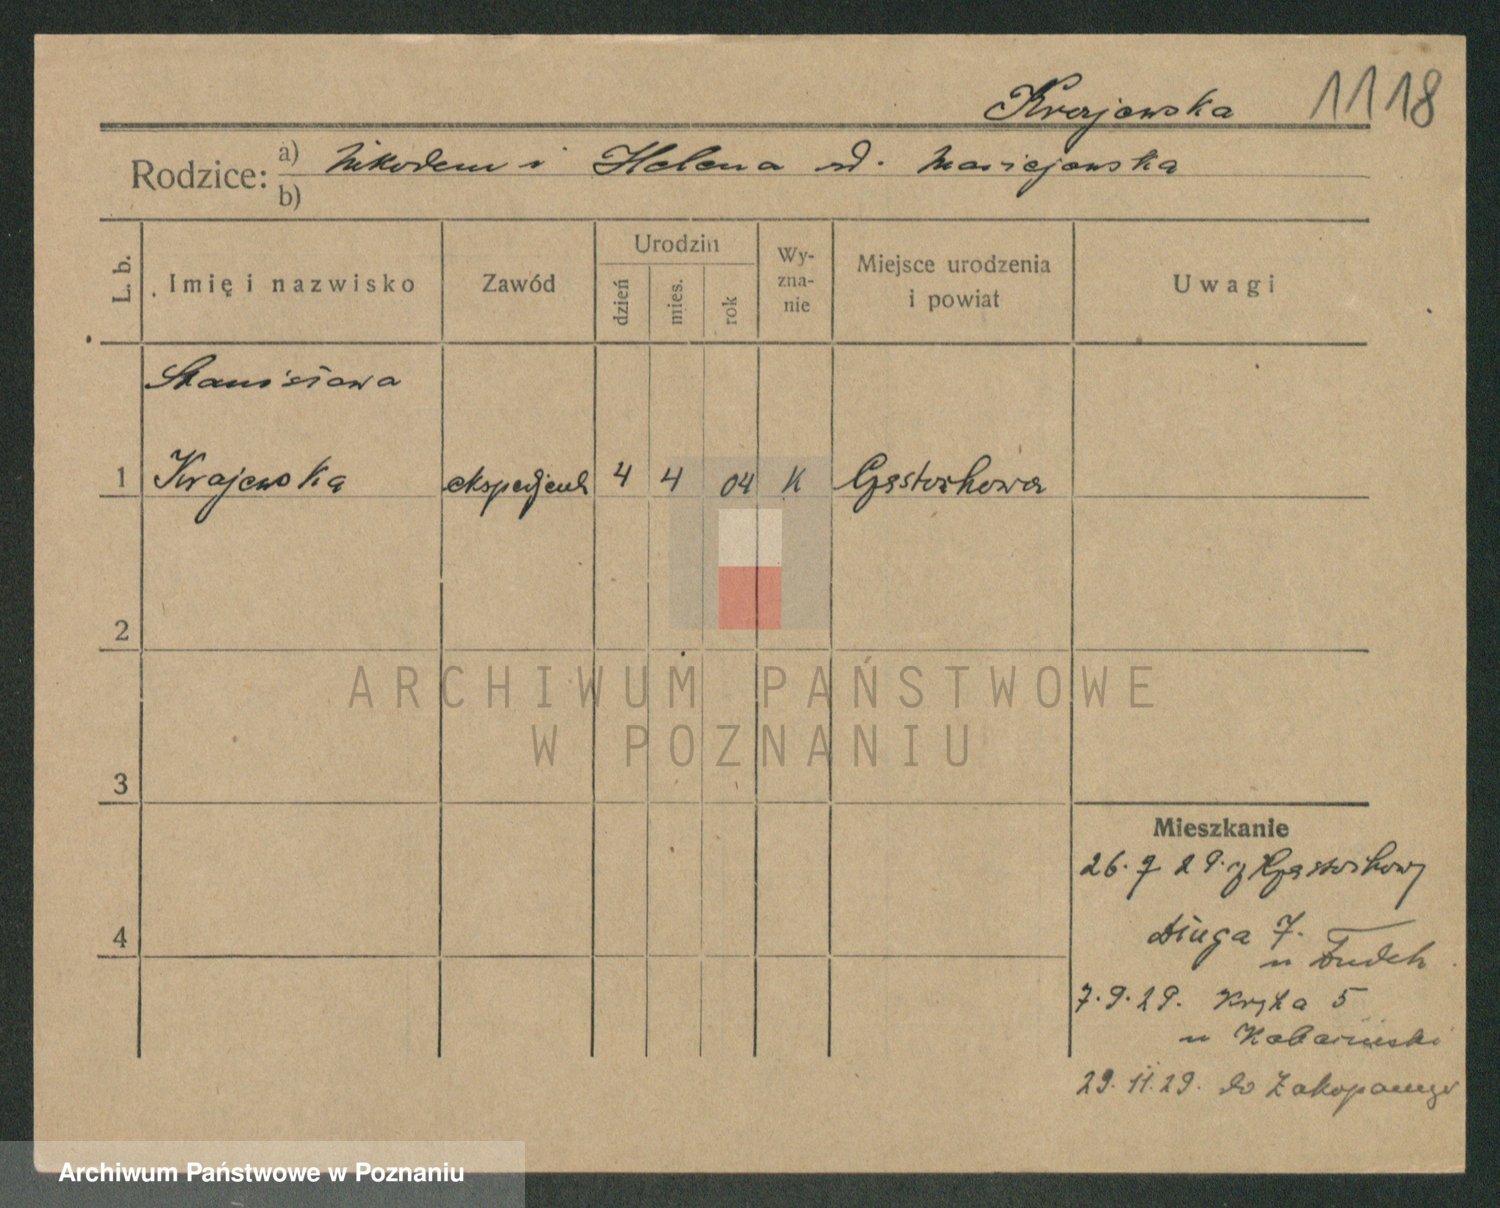 Krajewska 1118
Rodzice: a) Nikodem i Helena zd. Maciejewska
b)
L. b.
Imię i nazwisko
Zawód
Urodzin
dzień
mies.
rok
Wy-
zna-
nie
Miejsce urodzenia
i powiat
Uwagi
Stanisława
1 Krajewska ekspedjent 4 4 04 K Częstochowa
2
3
4
Mieszkanie
26. 7 29. z Częstochowy
Długa 7.
u
7.9.29. Kryta 5
u
29. 11. 29. do Zakopanego
ARCHIWUM PAŃSTWOWE
W POZNANIU
Archiwum Państwowe w Poznaniu